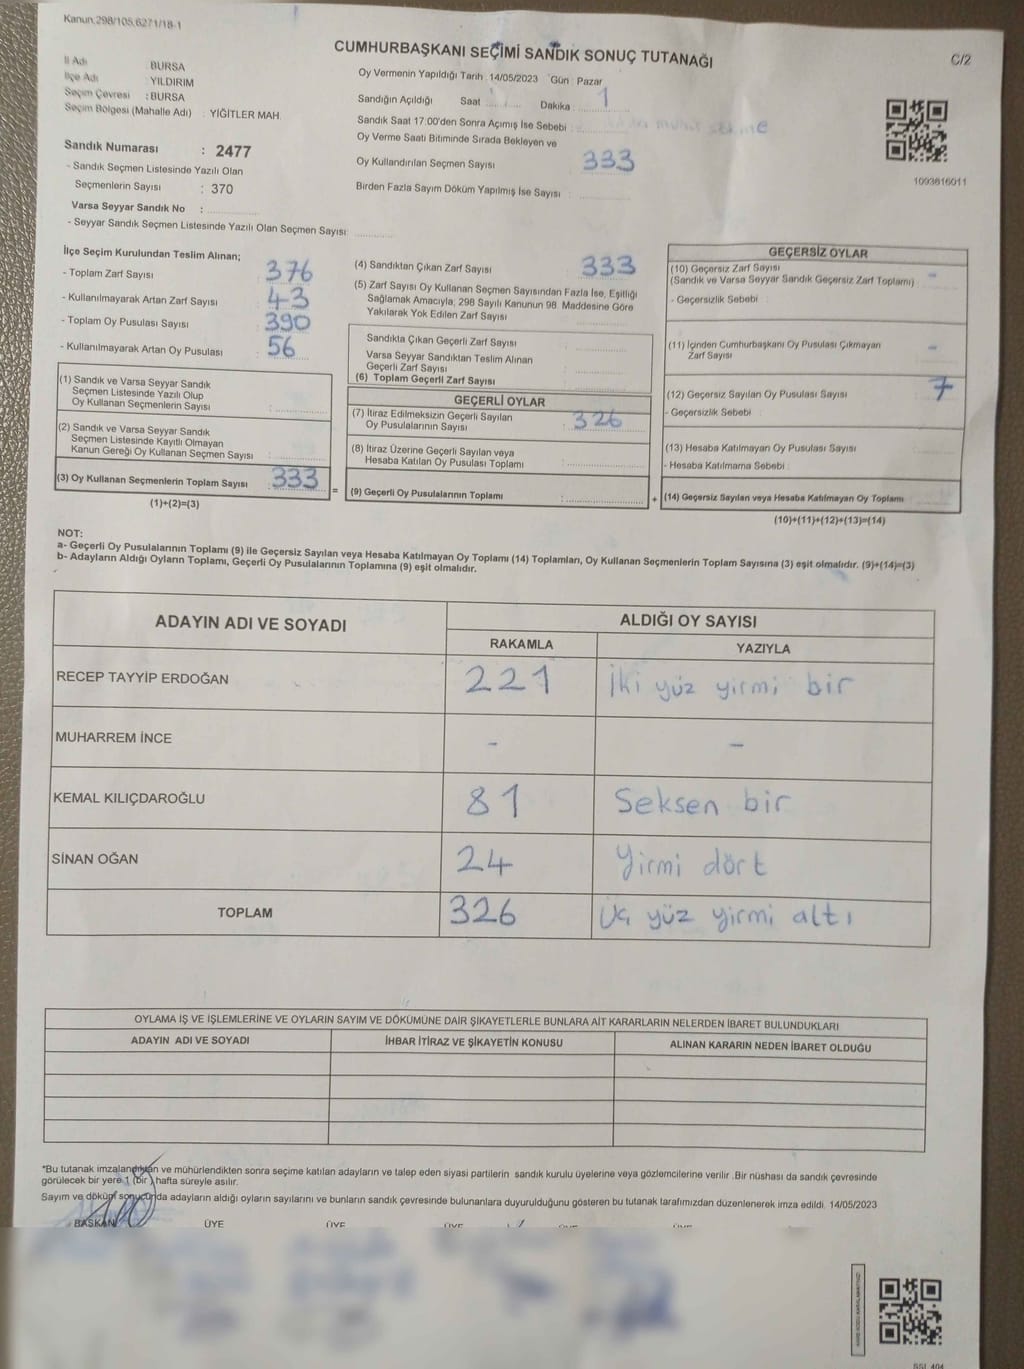 Kanun.298/105,6271/18-1
CUMHURBAŞKANI SEÇİMİ SANDIK SONUÇ TUTANAĞI
C/2
İl Adı : BURSA
İlçe Adı : YILDIRIM
Seçim Çevresi : BURSA
Seçim Bölgesi (Mahalle Adı) : YİĞİTLER MAH.
Sandık Numarası : 2477
- Sandık Seçmen Listesinde Yazılı Olan
Seçmenlerin Sayısı : 370
Varsa Seyyar Sandık No :
- Seyyar Sandık Seçmen Listesinde Yazılı Olan Seçmen Sayısı:
Oy Vermenin Yapıldığı Tarih :14/05/2023 Gün : Pazar
Sandığın Açıldığı Saat : Dakika :
Sandık Saat 17:00'den Sonra Açımış İse Sebebi :
Oy Verme Saati Bitiminde Sırada Bekleyen ve
Oy Kullandırılan Seçmen Sayısı : 333
Birden Fazla Sayım Döküm Yapılmış İse Sayısı :
1093616011
İlçe Seçim Kurulundan Teslim Alınan;
- Toplam Zarf Sayısı : 376
- Kullanılmayarak Artan Zarf Sayısı : 43
- Toplam Oy Pusulası Sayısı : 390
- Kullanılmayarak Artan Oy Pusulası : 56
(1) Sandık ve Varsa Seyyar Sandık
Seçmen Listesinde Yazılı Olup
Oy Kullanan Seçmenlerin Sayısı :
(2) Sandık ve Varsa Seyyar Sandık
Seçmen Listesinde Kayıtlı Olmayan
Kanun Gereği Oy Kullanan Seçmen Sayısı :
(3) Oy Kullanan Seçmenlerin Toplam Sayısı : 333
(1)+(2)=(3)
(4) Sandıktan Çıkan Zarf Sayısı : 333
(5) Zarf Sayısı Oy Kullanan Seçmen Sayısından Fazla İse, Eşitliği
Sağlamak Amacıyla; 298 Sayılı Kanunun 98. Maddesine Göre
Yakılarak Yok Edilen Zarf Sayısı :
Sandıkta Çıkan Geçerli Zarf Sayısı :
Varsa Seyyar Sandıktan Teslim Alınan
Geçerli Zarf Sayısı :
(6) Toplam Geçerli Zarf Sayısı :
GEÇERLİ OYLAR
(7) İtiraz Edilmeksizin Geçerli Sayılan
Oy Pusulalarının Sayısı : 326
(8) İtiraz Üzerine Geçerli Sayılan veya
Hesaba Katılan Oy Pusulası Toplamı :
= (9) Geçerli Oy Pusulalarının Toplamı : +
GEÇERSİZ OYLAR
(10) Geçersiz Zarf Sayısı : -
(Sandık ve Varsa Seyyar Sandık Geçersiz Zarf Toplamı)
- Geçersizlik Sebebi :
(11) İçinden Cumhurbaşkanı Oy Pusulası Çıkmayan
Zarf Sayısı : -
(12) Geçersiz Sayılan Oy Pusulası Sayısı : 7
- Geçersizlik Sebebi :
(13) Hesaba Katılmayan Oy Pusulası Sayısı :
- Hesaba Katılmama Sebebi :
(14) Geçersiz Sayılan veya Hesaba Katılmayan Oy Toplamı :
(10)+(11)+(12)+(13)=(14)
NOT:
a- Geçerli Oy Pusulalarının Toplamı (9) ile Geçersiz Sayılan veya Hesaba Katılmayan Oy Toplamı (14) Toplamları, Oy Kullanan Seçmenlerin Toplam Sayısına (3) eşit olmalıdır. (9)+(14)=(3)
b- Adayların Aldığı Oyların Toplamı, Geçerli Oy Pusulalarının Toplamına (9) eşit olmalıdır.
ADAYIN ADI VE SOYADI ALDIĞI OY SAYISI
RAKAMLA YAZIYLA
RECEP TAYYİP ERDOĞAN 221 İki yüz yirmi bir
MUHARREM İNCE - -
KEMAL KILIÇDAROĞLU 81 Seksen bir
SİNAN OĞAN 24 Yirmi dört
TOPLAM 326 Üç yüz yirmi altı
OYLAMA İŞ VE İŞLEMLERİNE VE OYLARIN SAYIM VE DÖKÜMÜNE DAİR ŞİKAYETLERLE BUNLARA AİT KARARLARIN NELERDEN İBARET BULUNDUKLARI
ADAYIN ADI VE SOYADI İHBAR İTİRAZ VE ŞİKAYETİN KONUSU ALINAN KARARIN NEDEN İBARET OLDUĞU
*Bu tutanak imzalandıktan ve mühürlendikten sonra seçime katılan adayların ve talep eden siyasi partilerin sandık kurulu üyelerine veya gözlemcilerine verilir .Bir nüshası da sandık çevresinde
görülecek bir yere 1 (bir ) hafta süreyle asılır.
Sayım ve döküm sonucunda adayların aldığı oyların sayılarını ve bunların sandık çevresinde bulunanlara duyurulduğunu gösteren bu tutanak tarafımızdan düzenlenerek imza edildi. 14/05/2023
BAŞKAN ÜYE ÜYE ÜYE